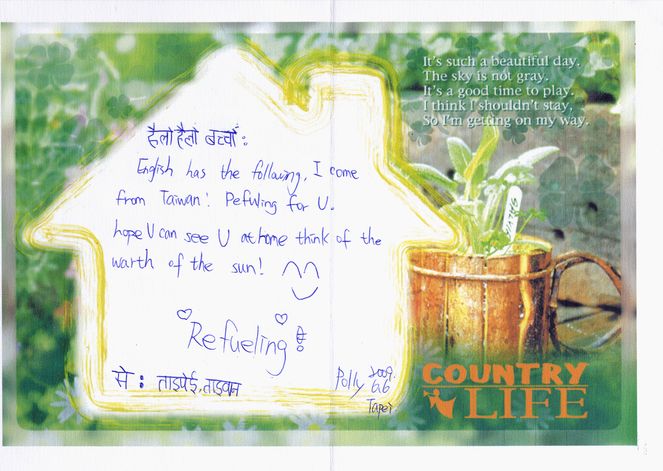 It's such a beautiful day,
The sky is not gray.
It's a good time to play.
I think I shouldn't stay,
So I'm getting on my way.
हैलो हैलो बच्चों :
English has the following, I come
from Taiwan! Pefuling for U.
hope U can see U at home think of the
warth of the sun!
Refueling
से : ताइपेई, ताइवान
Polly 2009.
6.6
Tapei
COUNTRY
LIFE